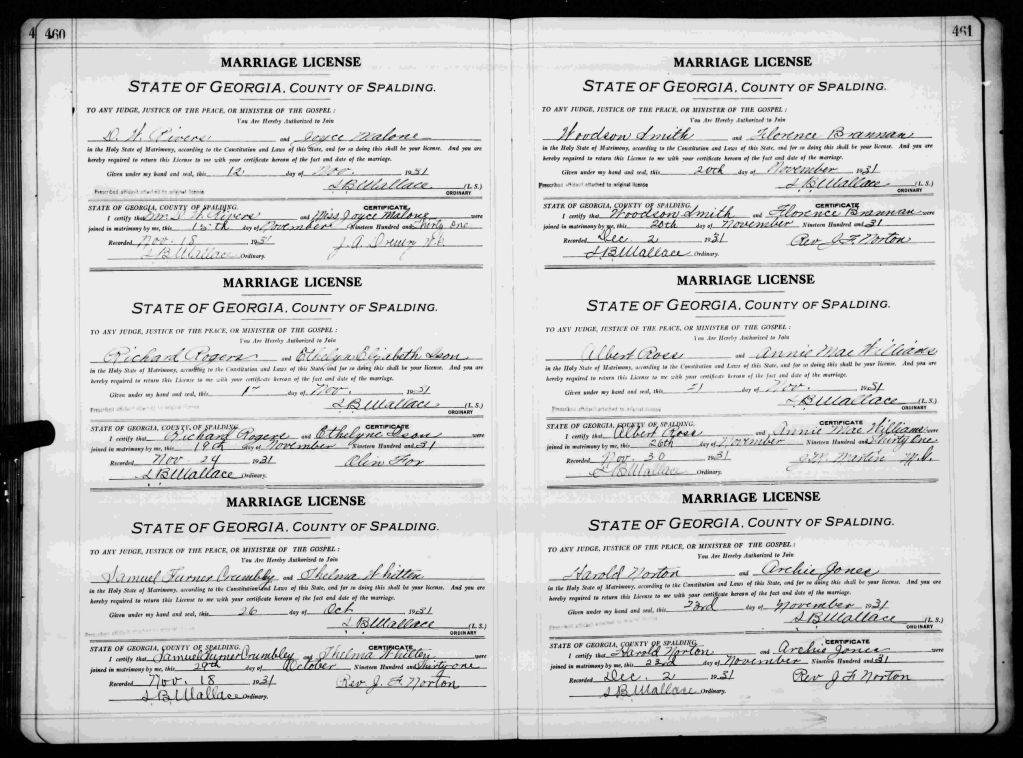 4 460
MARRIAGE LICENSE
STATE OF GEORGIA, COUNTY OF SPALDING.
TO ANY JUDGE, JUSTICE OF THE PEACE, OR MINISTER OF THE GOSPEL:
You Are Hereby Authorized to Join
D. W. Rivers and Joyce Malone
in the Holy State of Matrimony, according to the Constitution and Laws of this State, and for so doing this shall be your license. And you are
hereby required to return this License to me with your certificate hereon of the fact and date of the marriage.
Given under my hand and seal, this 12 day of Nov. 1931
L B Wallace (L. S.)
Prescribed affidavit attached to original license ORDINARY
STATE OF GEORGIA, COUNTY OF SPALDING. CERTIFICATE
I certify that Mr. D. W. Rivers and Miss Joyce Malone were
joined in matrimony by me, this 15th day of November Nineteen Hundred and Thirty One
Recorded Nov. 18 1931 J. A.
L B Wallace Ordinary.
MARRIAGE LICENSE
STATE OF GEORGIA, COUNTY OF SPALDING.
TO ANY JUDGE, JUSTICE OF THE PEACE, OR MINISTER OF THE GOSPEL:
You Are Hereby Authorized to Join
Richard Rogers and Ethelyn Elizabeth Ison
in the Holy State of Matrimony, according to the Constitution and Laws of this State, and for so doing this shall be your license. And you are
hereby required to return this License to me with your certificate hereon of the fact and date of the marriage.
Given under my hand and seal, this 17 day of Nov. 1931
L B Wallace (L. S.)
Prescribed affidavit attached to original license ORDINARY
STATE OF GEORGIA, COUNTY OF SPALDING. CERTIFICATE
I certify that Richard Rogers and Ethelyne Ison were
joined in matrimony by me, this 19th day of November Nineteen Hundred and 31
Recorded Nov 24 1931 Olin Fox
L B Wallace Ordinary.
MARRIAGE LICENSE
STATE OF GEORGIA, COUNTY OF SPALDING.
TO ANY JUDGE, JUSTICE OF THE PEACE, OR MINISTER OF THE GOSPEL:
You Are Hereby Authorized to Join
Samuel Turner Crumbly and Thelma Whitten
in the Holy State of Matrimony, according to the Constitution and Laws of this State, and for so doing this shall be your license. And you are
hereby required to return this License to me with your certificate hereon of the fact and date of the marriage.
Given under my hand and seal, this 26 day of Oct 1931
L B Wallace (L. S.)
Prescribed affidavit attached to original license ORDINARY
STATE OF GEORGIA, COUNTY OF SPALDING. CERTIFICATE
I certify that Samuel Turner Crumbley and Thelma Whitten were
joined in matrimony by me, this 29th day of October Nineteen Hundred and Thirty one
Recorded Nov. 18 1931 Rev J. F Norton
L B Wallace Ordinary.
461
MARRIAGE LICENSE
STATE OF GEORGIA, COUNTY OF SPALDING.
TO ANY JUDGE, JUSTICE OF THE PEACE, OR MINISTER OF THE GOSPEL:
You Are Hereby Authorized to Join
Woodson Smith and Florence Brannan
in the Holy State of Matrimony, according to the Constitution and Laws of this State, and for so doing this shall be your license. And you are
hereby required to return this License to me with your certificate hereon of the fact and date of the marriage.
Given under my hand and seal, this 20th day of November 1931
L B Wallace (L. S.)
Prescribed affidavit attached to original license ORDINARY
STATE OF GEORGIA, COUNTY OF SPALDING. CERTIFICATE
I certify that Woodson Smith and Florence Brannan were
joined in matrimony by me, this 20th day of November Nineteen Hundred and 31
Recorded Dec. 2 1931 Rev J. F Norton
L B Wallace Ordinary.
MARRIAGE LICENSE
STATE OF GEORGIA, COUNTY OF SPALDING.
TO ANY JUDGE, JUSTICE OF THE PEACE, OR MINISTER OF THE GOSPEL:
You Are Hereby Authorized to Join
Albert Ross and Annie Mae Williams
in the Holy State of Matrimony, according to the Constitution and Laws of this State, and for so doing this shall be your license. And you are
hereby required to return this License to me with your certificate hereon of the fact and date of the marriage.
Given under my hand and seal, this 21 day of Nov. 1931
L B Wallace (L. S.)
Prescribed affidavit attached to original license ORDINARY
STATE OF GEORGIA, COUNTY OF SPALDING. CERTIFICATE
I certify that Albert Ross and Annie Mae Williams were
joined in matrimony by me, this 26th day of November Nineteen Hundred and Thirty One
Recorded Nov. 30 1931 J. W. Martin M. G.
L B Wallace Ordinary.
MARRIAGE LICENSE
STATE OF GEORGIA, COUNTY OF SPALDING.
TO ANY JUDGE, JUSTICE OF THE PEACE, OR MINISTER OF THE GOSPEL:
You Are Hereby Authorized to Join
Harold Norton and Archie Jones
in the Holy State of Matrimony, according to the Constitution and Laws of this State, and for so doing this shall be your license. And you are
hereby required to return this License to me with your certificate hereon of the fact and date of the marriage.
Given under my hand and seal, this 23rd day of November 1931
L B Wallace (L. S.)
ORDINARY
STATE OF GEORGIA, COUNTY OF SPALDING. CERTIFICATE
I certify that Harold Norton and Archie Jones were
joined in matrimony by me, this 23rd day of November Nineteen Hundred and 31
Recorded Dec. 2 1931 Rev J F Norton
L B Wallace Ordinary.